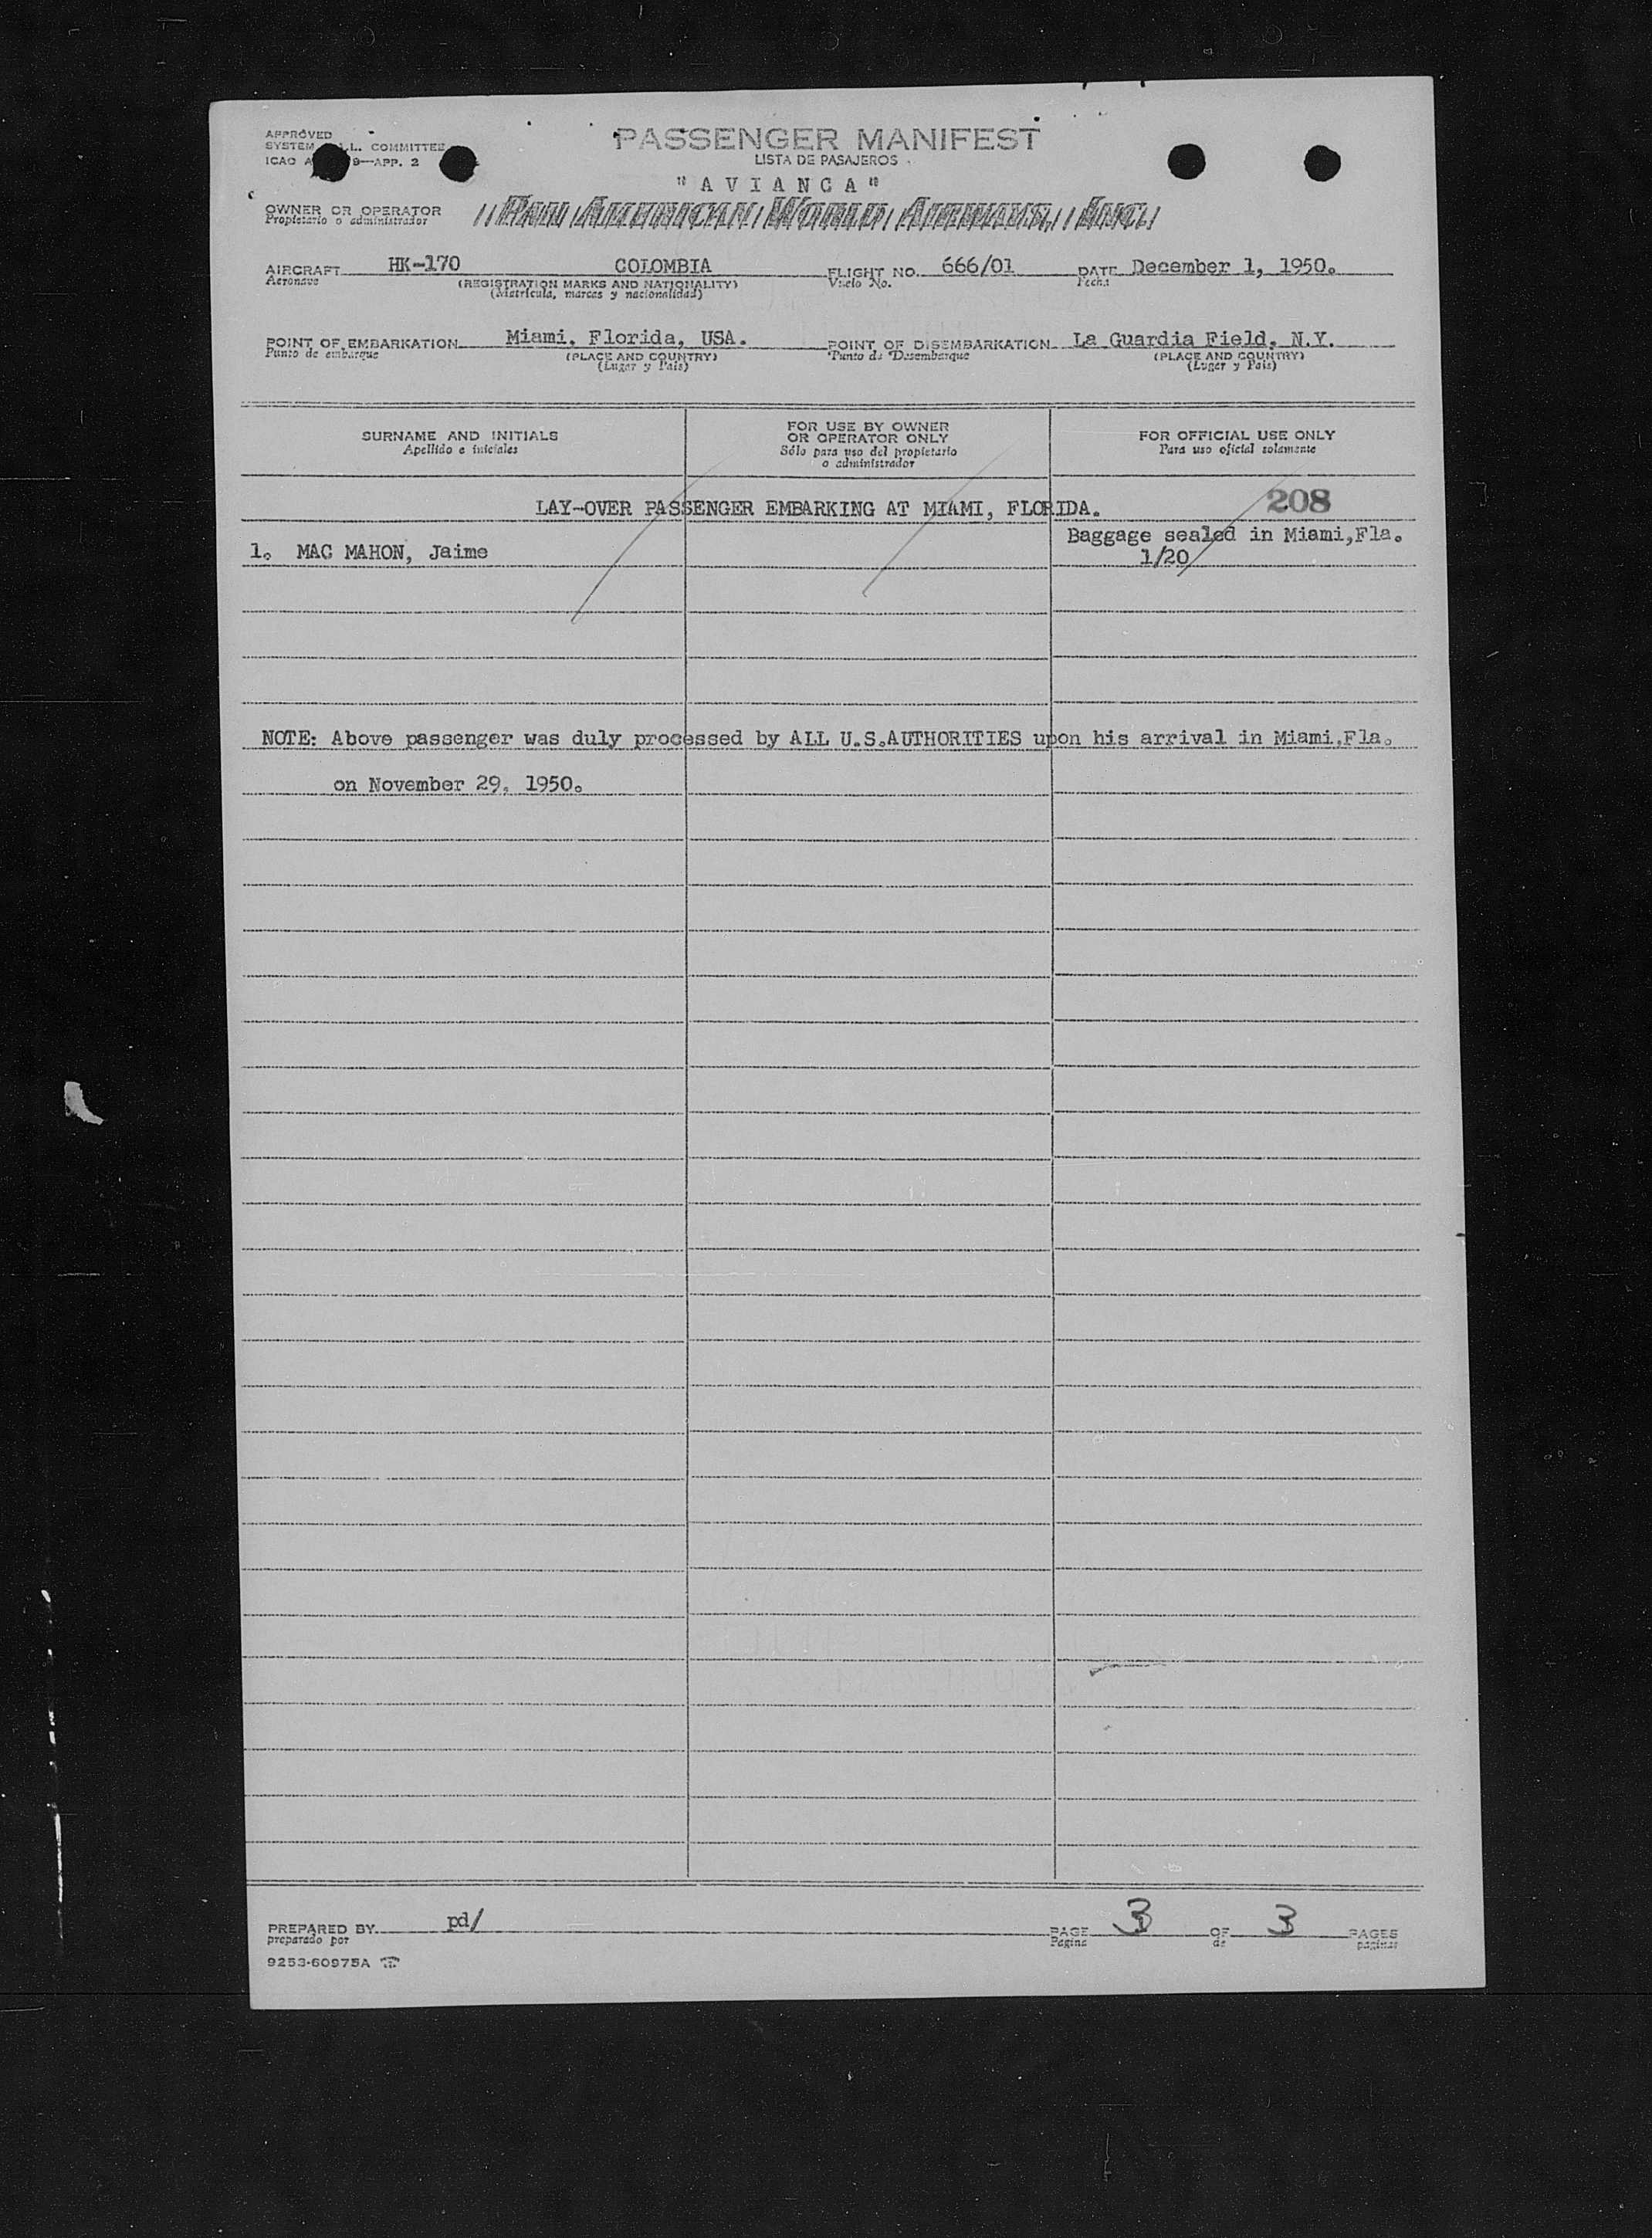 APPROVED
SYSTEM L. COMMITTEE
ICAO A 9—APP. 2
PASSENGER MANIFEST
LISTA DE PASAJEROS
"AVIANCA"
OWNER OR OPERATOR PAN AMERICAN WORLD AIRWAYS, INC.
Propietario o administrador
AIRCRAFT HK-170 COLOMBIA FLIGHT NO. 666/01 DATE December 1, 1950.
Aeronave (REGISTRATION MARKS AND NATIONALITY) Vuelo No. Fecha
(Matrícula, marcas y nacionalidad)
POINT OF EMBARKATION Miami, Florida, USA. POINT OF DISEMBARKATION La Guardia Field, N.Y.
Punto de embarque (PLACE AND COUNTRY) Punto de Desembarque (PLACE AND COUNTRY)
(Lugar y País) (Lugar y País)
SURNAME AND INITIALS
Apellido e iniciales
FOR USE BY OWNER
OR OPERATOR ONLY
Sólo para uso del propietario
o administrador
FOR OFFICIAL USE ONLY
Para uso oficial solamente
LAY-OVER PASSENGER EMBARKING AT MIAMI, FLORIDA. 208
1. MAC MAHON, Jaime
Baggage sealed in Miami,Fla.
1/20
NOTE: Above passenger was duly processed by ALL U.S.AUTHORITIES upon his arrival in Miami,Fla.
on November 29, 1950.
PREPARED BY pd/ PAGE 3 OF 3 PAGES
preparado por Página de páginas
9253-60975A